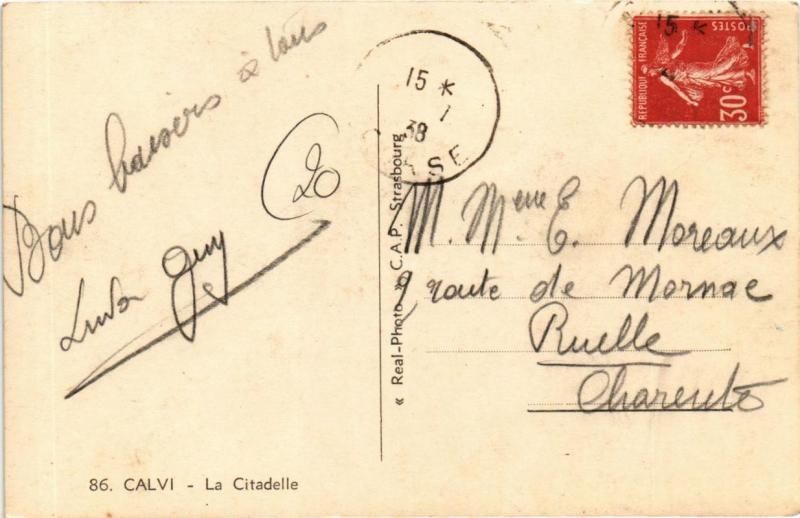 Bons baisers à tous
Guy
20
86. CALVI - La Citadelle
« Real-Photo » C.A.P. Strasbourg
15 *
1
38
SE
15 *
RÉPUBLIQUE FRANÇAISE
POSTES
30c
M. Mme E. Moreaux
9 route de Mornac
Ruelle
Charente